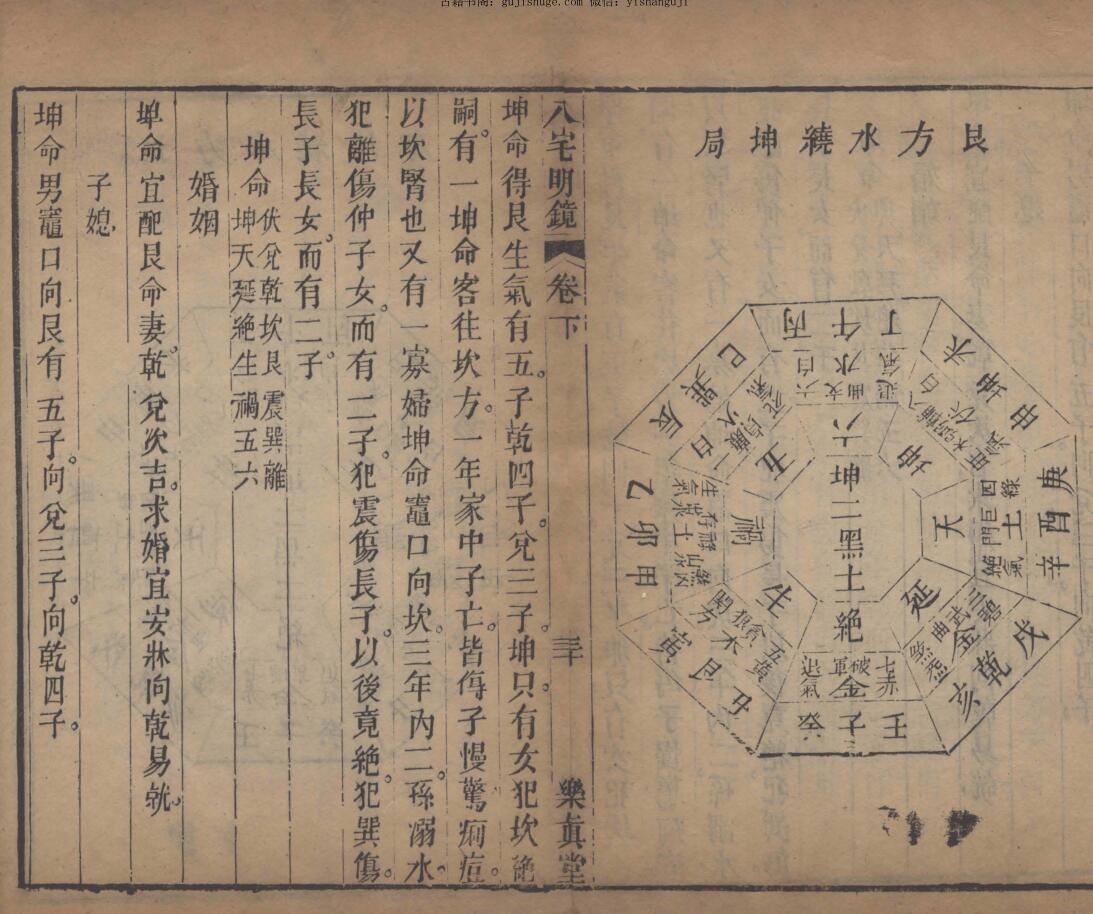 古籍书阁：gujishuge.com 微信：yishanguji
艮方水繞坤局
丁午丙
未坤申
庚酉辛
戌乾亥
壬子癸
丑艮寅
甲卯乙
辰巽巳
退氣
文曲水
六白
四綠
巨門土
絕氣
三碧
武曲金
煞氣
七赤
破軍金
退氣
五黃
貪狼木
祿存土
生氣
廉貞火
一白
六
坤
天
延
絕
生
禍
五
坤二黑土
八宅明鏡
卷下
三十
樂真堂
坤命得艮生氣有五子。乾四子。兌三子。坤只有女。犯坎絕
嗣。有一坤命客往坎方。一年家中子亡。皆傷子慢驚痢痘。
以坎腎也。又有一寡婦坤命竈口向坎。三年內二孫溺水。
犯離傷仲子女。而有二子。犯震傷長子。以後竟絕。犯巽傷
長子長女。而有二子。
坤命 伏兌乾坎艮震巽離
坤天延絕生禍五六
婚姻
坤命宜配艮命妻。乾兌次吉。求婚宜安牀向乾易就。
子媳
坤命男竈口向艮有五子。向兌三子。向乾四子。